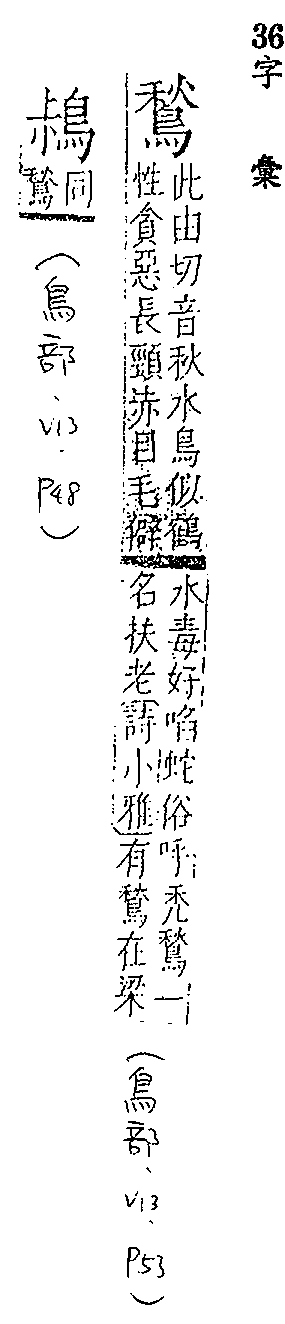 36字彙
鶖
此由切音秋水鳥似鶴
性貪惡長頸赤目毛
水毒好啗蛇俗呼禿鶖一
名扶老詩小雅有鶖在梁
(鳥部、V13、P53)
同
鶖
(鳥部、V13、P48)